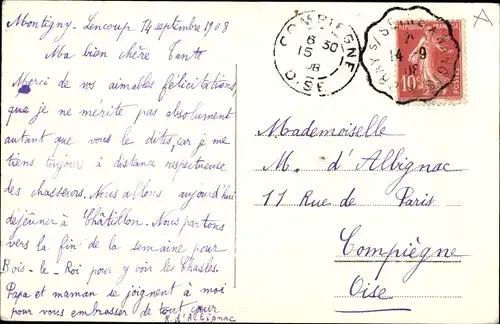 Montigny-Lencoup 14 septembre 1908
Ma bien chère Tante
Merci de vos aimables félicitations
que je ne mérite pas absolument
autant que vous le dites, car je me
tiens toujour à distance respectueuse
des chasseurs. Nous allons aujourd'hui
déjeuner à Châtillon. Nous partons
vers la fin de la semaine pour
Bois-le-Roi pour y voir les Chasles.
Papa et maman se joignent à moi
pour vous embrasser de tout cœur
R. d'Albignac
COMPIEGNE
6 30
15
08
OISE
14-9
08
10
POSTES
Mademoiselle
M. d'Albignac
11 Rue de Paris
Compiègne
Oise